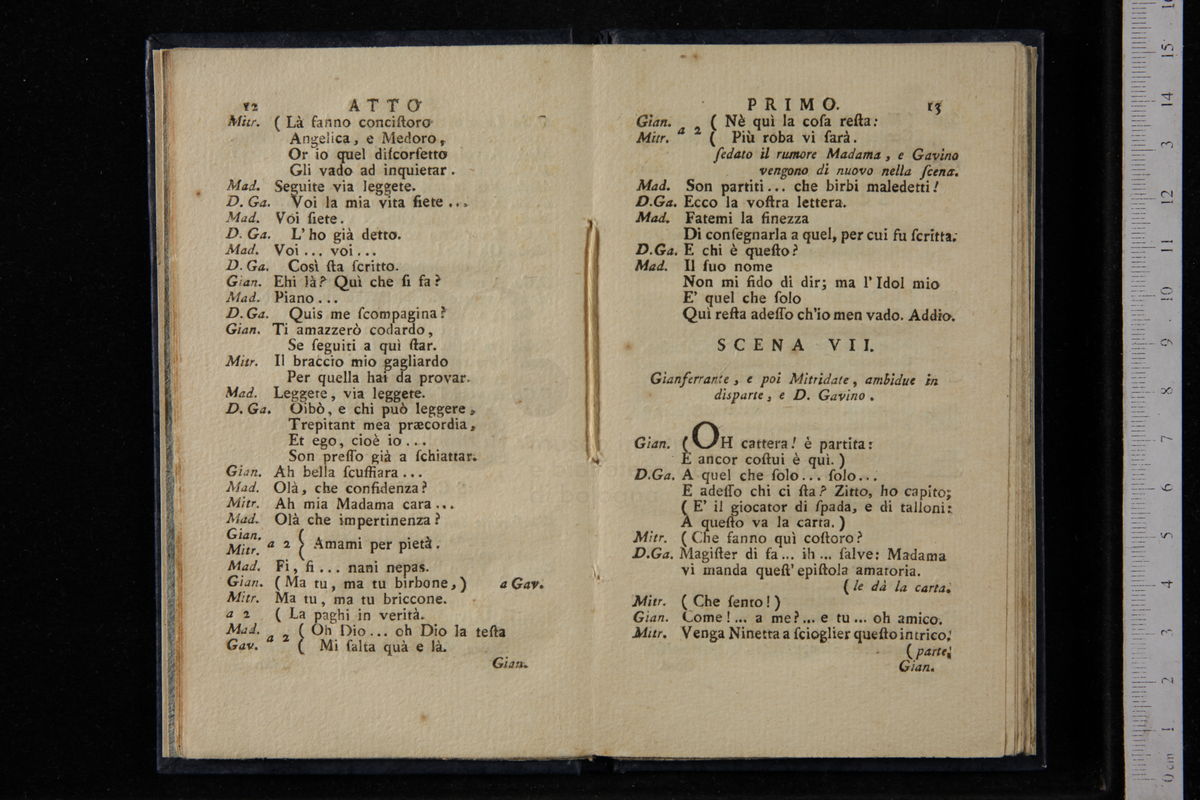 12 ATTO
Mitr. ( Là fanno conciſtoro
Angelica, e Medoro,
Or io quel diſcorſetto
Gli vado ad inquietar.
Mad. Seguite via leggete.
D. Ga. Voi la mia vita ſiete ...
Mad. Voi ſiete.
D. Ga. L' ho già detto.
Mad. Voi ... voi ...
D. Ga. Così ſta ſcritto.
Gian. Ehi là? Quì che ſi fa?
Mad. Piano ...
D. Ga. Quis me ſcompagina?
Gian. Ti amazzerò codardo,
Se ſeguiti a quì ſtar.
Mitr. Il braccio mio gagliardo
Per quella hai da provar.
Mad. Leggete, via leggete.
D. Ga. Oibò, e chi può leggere,
Trepitant mea præcordia,
Et ego, cioè io ...
Son preſſo già a ſchiattar.
Gian. Ah bella ſcuffiara ...
Mad. Olà, che confidenza?
Mitr. Ah mia Madama cara ...
Mad. Olà che impertinenza?
Gian.
Mitr. a 2 ( Amami per pietà.
Mad. Fi, ſi ... nani nepas.
Gian. ( Ma tu, ma tu birbone, ) a Gav.
Mitr. Ma tu, ma tu briccone.
a 2 ( La paghi in verità.
Mad. a 2 ( Oh Dio ... oh Dio la teſta
Gav. ( Mi ſalta quà e là.
Gian.
PRIMO. 13
Gian. a 2 ( Nè quì la coſa reſta:
Mitr. ( Più roba vi ſarà.
ſedato il rumore Madama, e Gavino
vengono di nuovo nella ſcena.
Mad. Son partiti ... che birbi maledetti!
D.Ga. Ecco la voſtra lettera.
Mad. Fatemi la finezza
Di conſegnarla a quel, per cui fu ſcritta.
D.Ga. E chi è queſto?
Mad. Il ſuo nome
Non mi fido di dir; ma l' Idol mio
E' quel che ſolo
Quì reſta adeſſo ch'io men vado. Addio.
SCENA VII.
Gianferrante, e poi Mitridate, ambidue in
diſparte, e D. Gavino.
Gian. ( OH cattera! è partita:
E ancor coſtui è quì. )
D.Ga. A quel che ſolo ... ſolo ...
E adeſſo chi ci ſta? Zitto, ho capito;
( E' il giocator di ſpada, e di talloni:
A queſto va la carta. )
Mitr. ( Che fanno quì coſtoro?
D.Ga. Magiſter di fa ... ih ... ſalve: Madama
vi manda queſt' epiſtola amatoria.
( le dà la carta.
Mitr. ( Che ſento! )
Gian. Come! ... a me? ... e tu ... oh amico.
Mitr. Venga Ninetta a ſcioglier queſto intrico.
( parte.
Gian.
0 cm 1 2 3 4 5 6 7 8 9 10 11 12 13 14 15